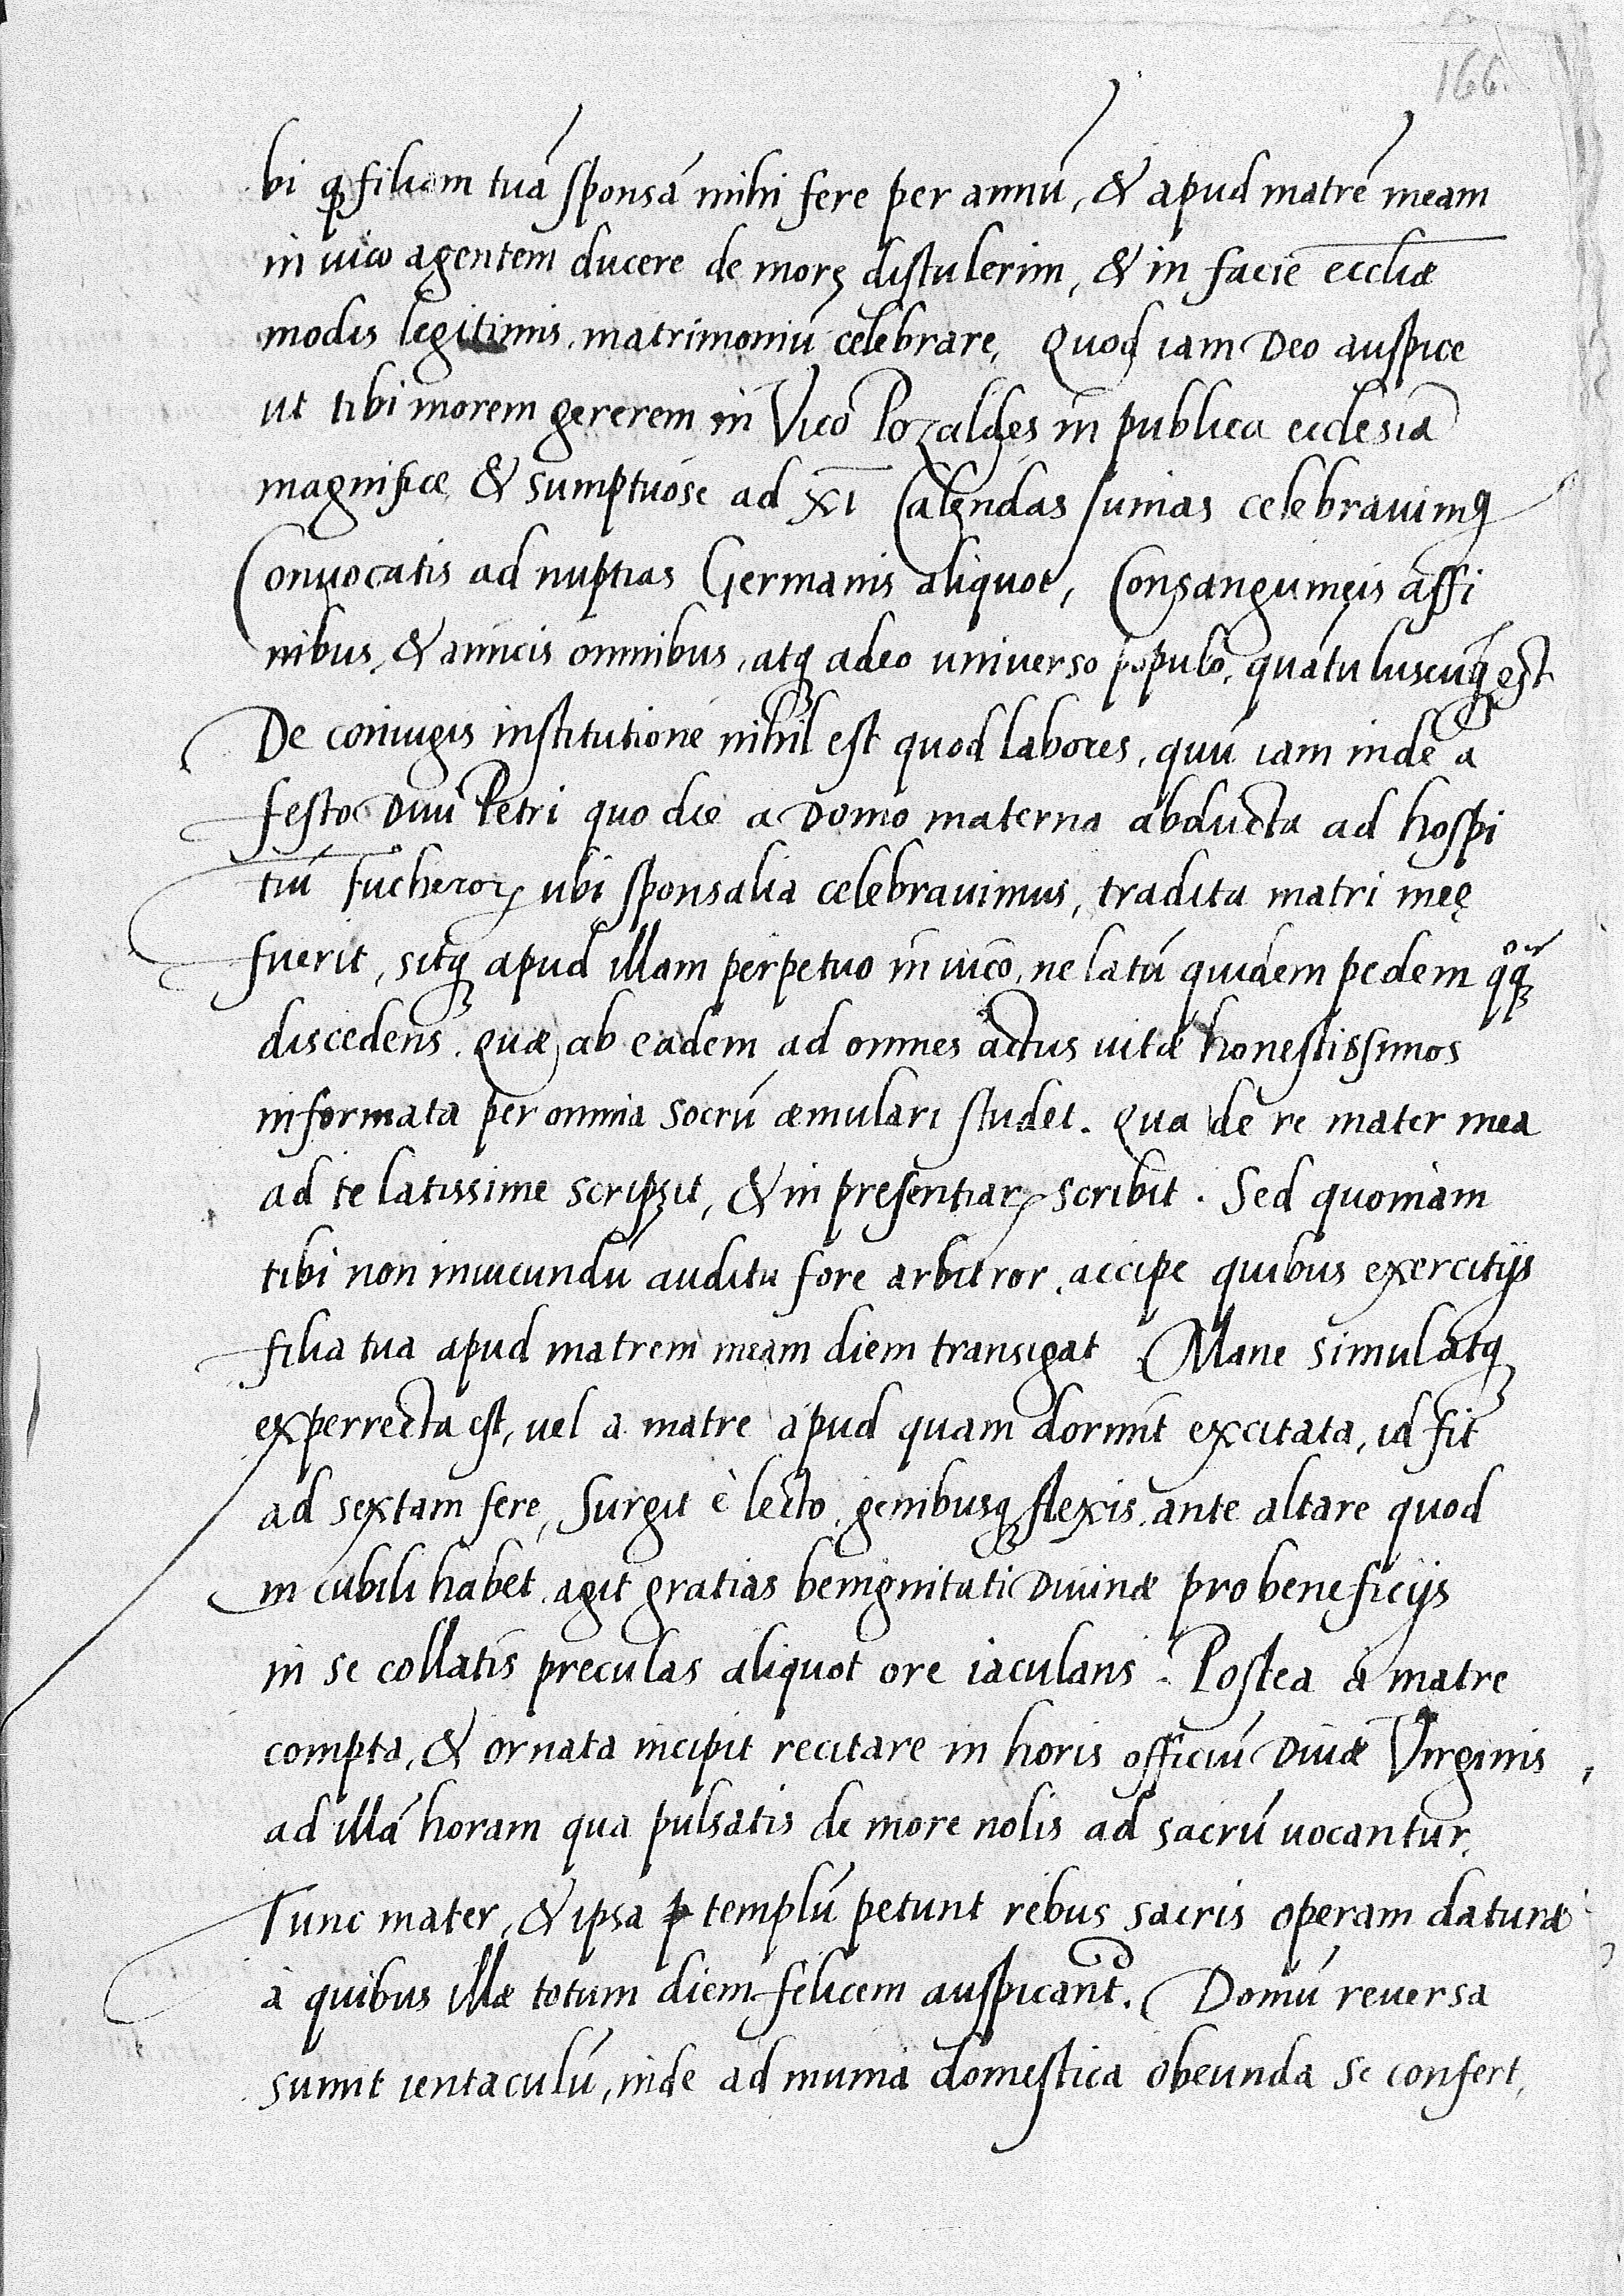 166.
bi ꝙ filiam tuã sponsã mihi fere per annũ, & apud matrẽ meam
in uico agentem ducere de more distulerim, & in faciẽ eccliæ
modis legitimis matrimoniũ celebrare, Quod iam Deo auspice
ut tibi morem gererem in Vico Pozaldes in publica ecclesia
magnifice & sumptuose ad XI Calendas Iunias celebrauimꝰ
Conuocatis ad nuptias Germanis aliquot, Consanguineis affi
nibus, & amicis omnibus, atqꝫ adeo uniuerso populo, quãtuluscũqꝫ est
De coniugis institutione nihil est quod labores, quũ iam inde a
festo Diui Petri quo die a Domo materna abducta ad hospi
tiũ Fucheroꝝ ubi sponsalia celebrauimus, tradita matri meę
fuerit, sitqꝫ apud illam perpetuo in uico, ne latũ quidem pedem qͦqꝫ
discedens. Quæ ab eadem ad omnes actus uitæ honestissimos
informata per omnia socrũ æmulari studet. Qua de re mater mea
ad te latissime scripsit, & in presentiaꝝ scribit. Sed quoniam
tibi non iniucundũ auditu fore arbitror, accipe quibus exercitijs
filia tua apud matrem meam diem transigat. Mane simulatqꝫ
experrecta est, uel a matre apud quam dormit excitata, id fit
ad sextam fere, Surgit è lecto, genibusqꝫ flexis ante altare quod
in cubili habet, agit gratias benignitati Diuinæ pro beneficijs
in se collatis preculas aliquot ore iaculans. Postea à matre
compta, & ornata incipit recitare in horis officiũ Diuæ Virginis,
ad illã horam qua pulsatis de more nolis ad sacrũ uocantur.
Tunc mater, & ipsa templũ petunt rebus sacris operam daturæ
à quibus illæ totum diem felicem auspicant̃. Domũ reuersa
sumit ientaculũ, inde ad munia domestica obeunda se confert,